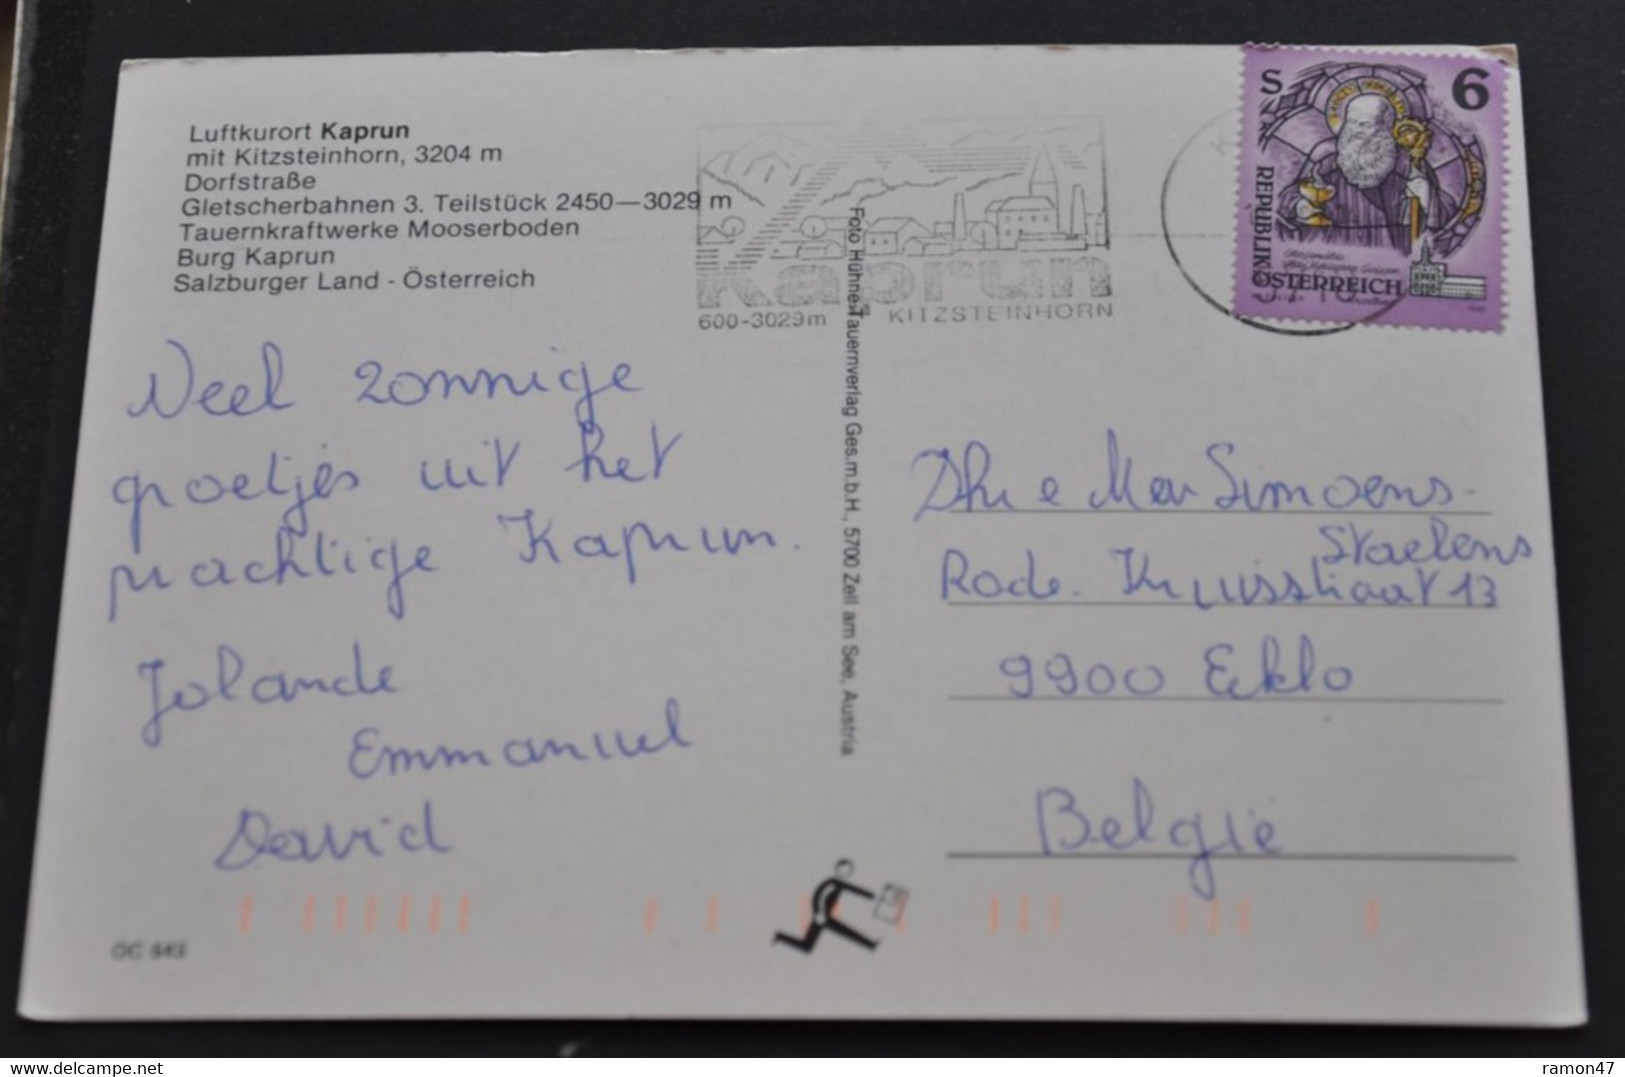 Luftkurort Kaprun
mit Kitzsteinhorn, 3204 m
Dorfstraße
Gletscherbahnen 3. Teilstück 2450—3029 m
Tauernkraftwerke Mooserboden
Burg Kaprun
Salzburger Land - Österreich
Kaprun
600-3029m KITZSTEINHORN
S 6
REPUBLIK
ÖSTERREICH
Foto Hühne, Tauernverlag Ges.m.b.H., 5700 Zell am See, Austria
Veel zonnige
groetjes uit het
prachtige Kaprun.
Jolande
Emmanuel
David
Dhr e Mevr Simoens-
Staelens
Rode. Kruisstraat 13
9900 Eeklo
België
GC 843
Delcampe.net
ramon47